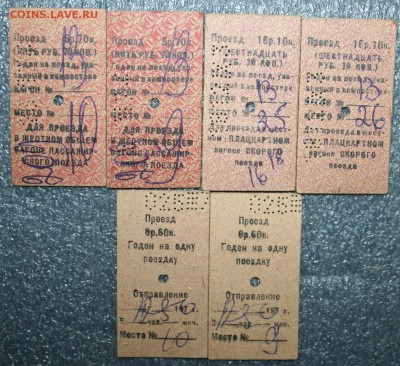 COINS.LAVE.RU
Проезд 5р.70к.
(ПЯТЬ РУБ. 70 КОП.)
Годен на поезд, ука-
занный в компостере
ВАГОН №
МЕСТО № 19
ДЛЯ ПРОЕЗДА
В ЖЕСТКОМ ОБЩЕМ
ВАГОНЕ ПАССАЖИР-
СКОГО ПОЕЗДА
Проезд 5р.70к.
(ПЯТЬ РУБ. 70 КОП.)
Годен на поезд, ука-
занный в компостере
ВАГОН №
МЕСТО №
ДЛЯ ПРОЕЗДА
В ЖЕСТКОМ ОБЩЕМ
ВАГОНЕ ПАССАЖИР-
СКОГО ПОЕЗДА
Проезд 16р.10к.
(ШЕСТНАДЦАТЬ
РУБ. 10 КОП.)
Годен на поезд, указан-
ный в компостере
ВАГОН № 13
МЕСТО № 25
Для проезда в жест-
ком ПЛАЦКАРТНОМ
вагоне СКОРОГО
поезда
16 18
Проезд 16р.10к.
(ШЕСТНАДЦАТЬ
РУБ. 10 КОП.)
Годен на поезд, указан-
ный в компостере
ВАГОН № 13
МЕСТО № 26
Для проезда в жест-
ком ПЛАЦКАРТНОМ
вагоне СКОРОГО
поезда
Проезд
0р.60к.
Годен на одну
поездку
Отправление
197
час. мин.
Место № 10
Проезд
0р.60к.
Годен на одну
поездку
Отправление
197
час. мин.
Место № 9